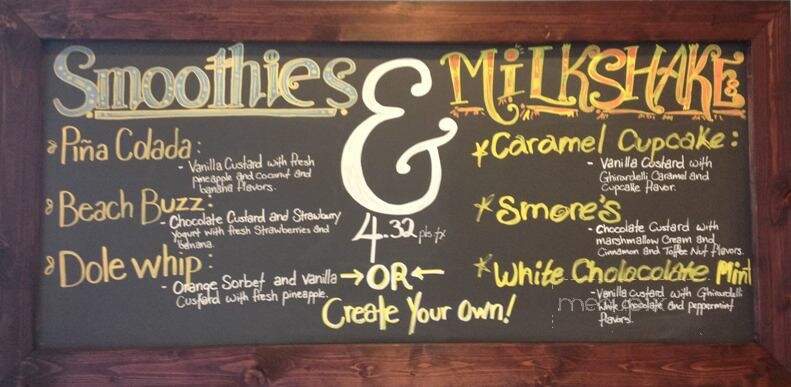 Smoothies & MILKSHAKEs
Piña Colada:
- Vanilla Custard with fresh
pineapple and coconut and
banana flavors.
Beach Buzz:
- Chocolate Custard and Strawbury
Yogurt with fresh Strawberries and
banana.
Dole whip:
- Orange Sorbet and Vanilla
Custard with fresh pineapple.
4.32 pls tx
→OR←
Create Your Own!
Caramel Cupcake:
- Vanilla Custard with
Ghirardelli Caramel and
Cupcake flavor.
Smore's
- Chocolate Custard with
marshmallow Cream and
Cinnamon and Toffee Nut flavors.
White Cholocolate Mint
- Vanilla custard with Ghirardelli
White Chocolate and peppermint
flavors.